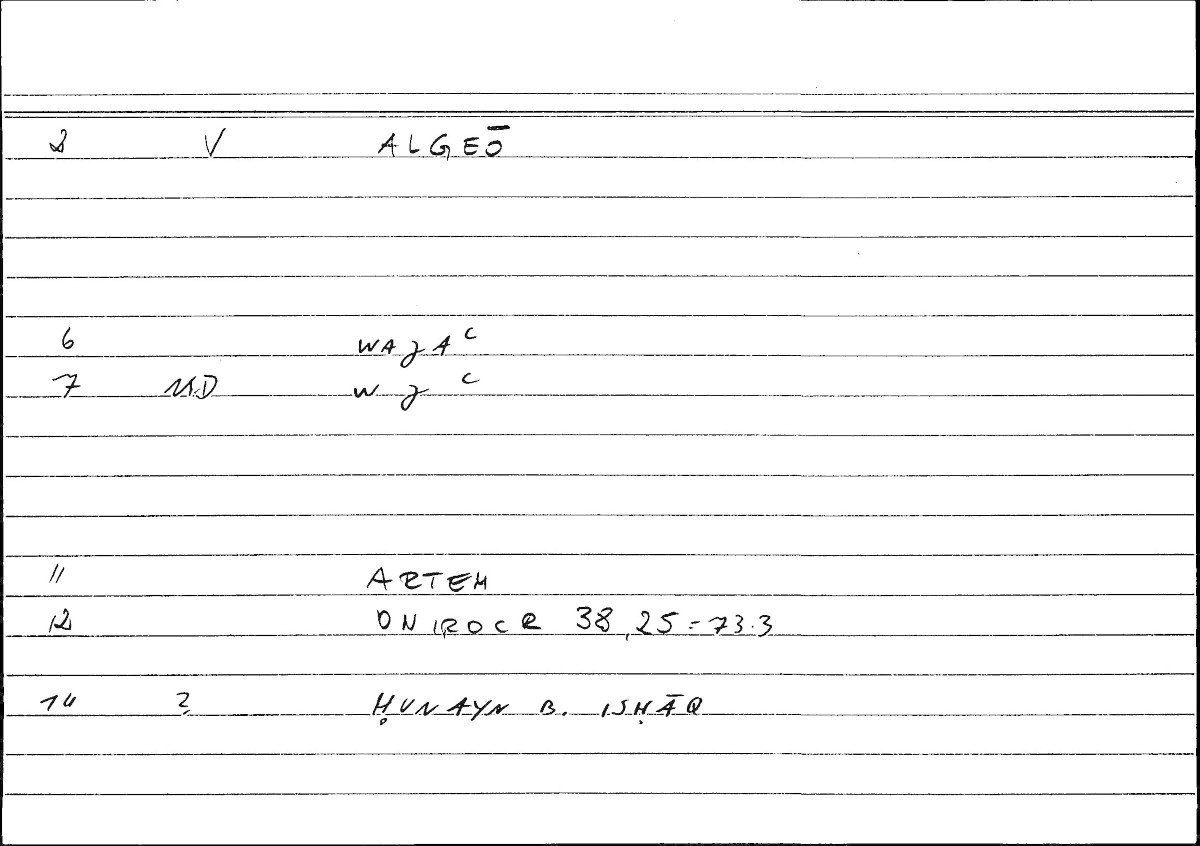 2 V ALGEŌ
6 WAJAᶜ
7 MD WJᶜ
11 ARTEM
12 ONIROCR 38,25=73.3
14 2 ḤUNAYN B. ISḤĀQ